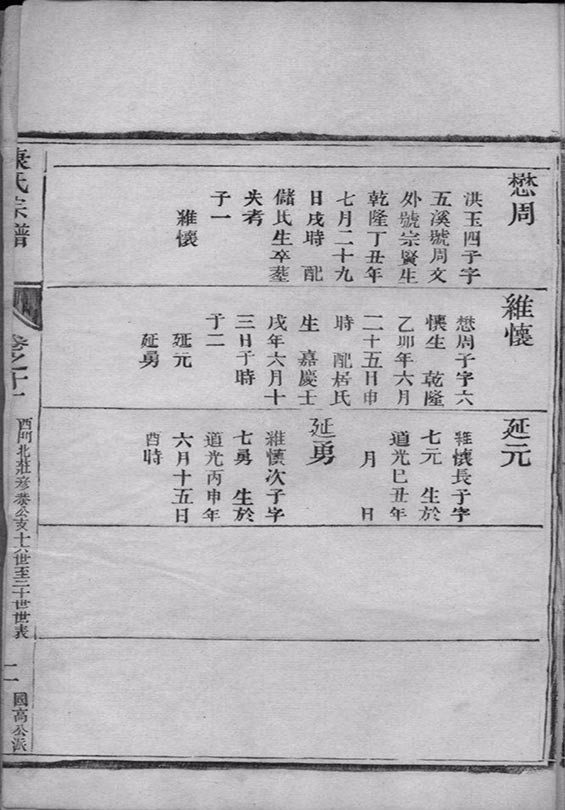 懋周
洪玉四子字
五溪號周文
外號宗賢生
乾隆丁丑年
七月二十九
日戌時 配
儲氏生卒塟
失考
子一
維懷
維懷
懋周子字六
懷生 乾隆
乙卯年六月
二十五日申
時 配居氏
生 嘉慶壬
戌年六月十
三日子時
子二
延元
延勇
延元
維懷長子字
七元 生於
道光巳丑年
月 日
延勇
維懷次子字
七勇 生於
道光丙申年
六月十五日
酉時
氏宗譜
卷之十一
西門北莊彥恭公亥十六世至二十世世表
二
國高公派